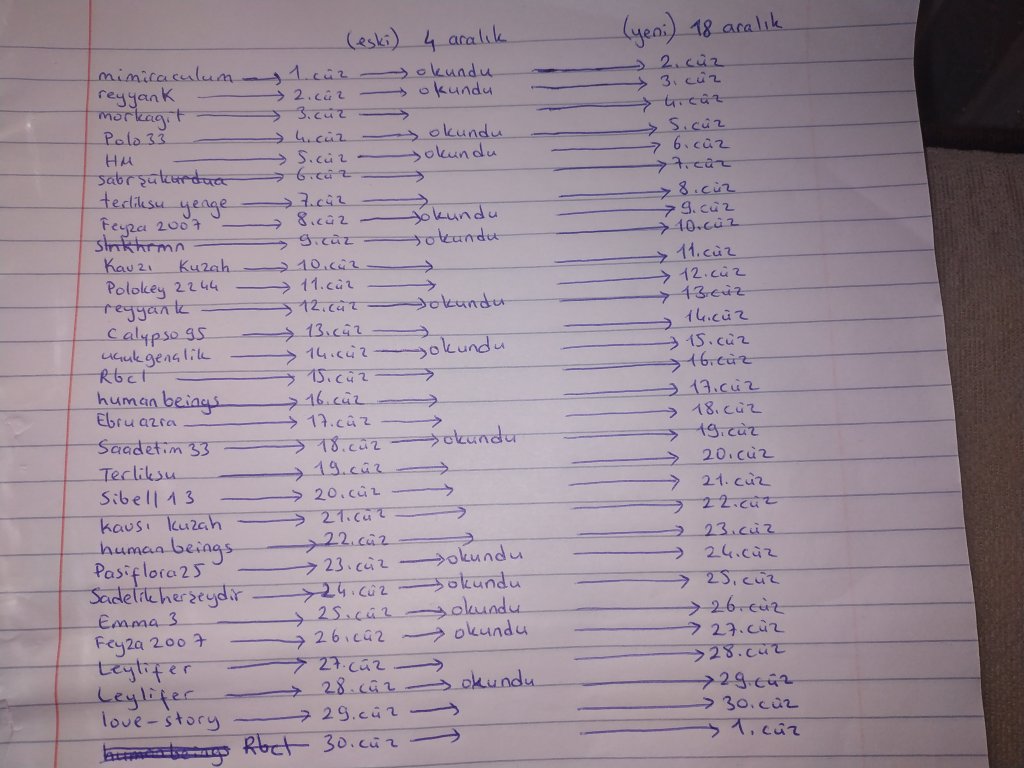 (eski) 4 aralık (yeni) 18 aralık
mimiraculum → 1.cüz → okundu → 2.cüz
reyyank → 2.cüz → okundu → 3.cüz
morkagit → 3.cüz → → 4.cüz
Polo33 → 4.cüz → okundu → 5.cüz
HM → 5.cüz → okundu → 6.cüz
sabrşükürdua → 6.cüz → → 7.cüz
terliksu yenge → 7.cüz → → 8.cüz
Feyza 2007 → 8.cüz → okundu → 9.cüz
slnkhrmn → 9.cüz → okundu → 10.cüz
Kavzı Kuzah → 10.cüz → → 11.cüz
Polokey 2244 → 11.cüz → → 12.cüz
reyyank → 12.cüz → okundu → 13.cüz
Calypso95 → 13.cüz → → 14.cüz
ucukgenalik → 14.cüz → okundu → 15.cüz
Rbct → 15.cüz → → 16.cüz
human beings → 16.cüz → → 17.cüz
Ebruazra → 17.cüz → → 18.cüz
Saadetim 33 → 18.cüz → okundu → 19.cüz
Terliksu → 19.cüz → → 20.cüz
Sibell13 → 20.cüz → → 21.cüz
kavsı kuzah → 21.cüz → → 22.cüz
human beings → 22.cüz → → 23.cüz
Pasiflora25 → 23.cüz → okundu → 24.cüz
Sadelikherzeydir → 24.cüz → okundu → 25.cüz
Emma 3 → 25.cüz → okundu → 26.cüz
Feyza 2007 → 26.cüz → okundu → 27.cüz
Leylifer → 27.cüz → → 28.cüz
Leylifer → 28.cüz → okundu → 29.cüz
love-story → 29.cüz → → 30.cüz
human beings Rbct 30.cüz → → 1.cüz